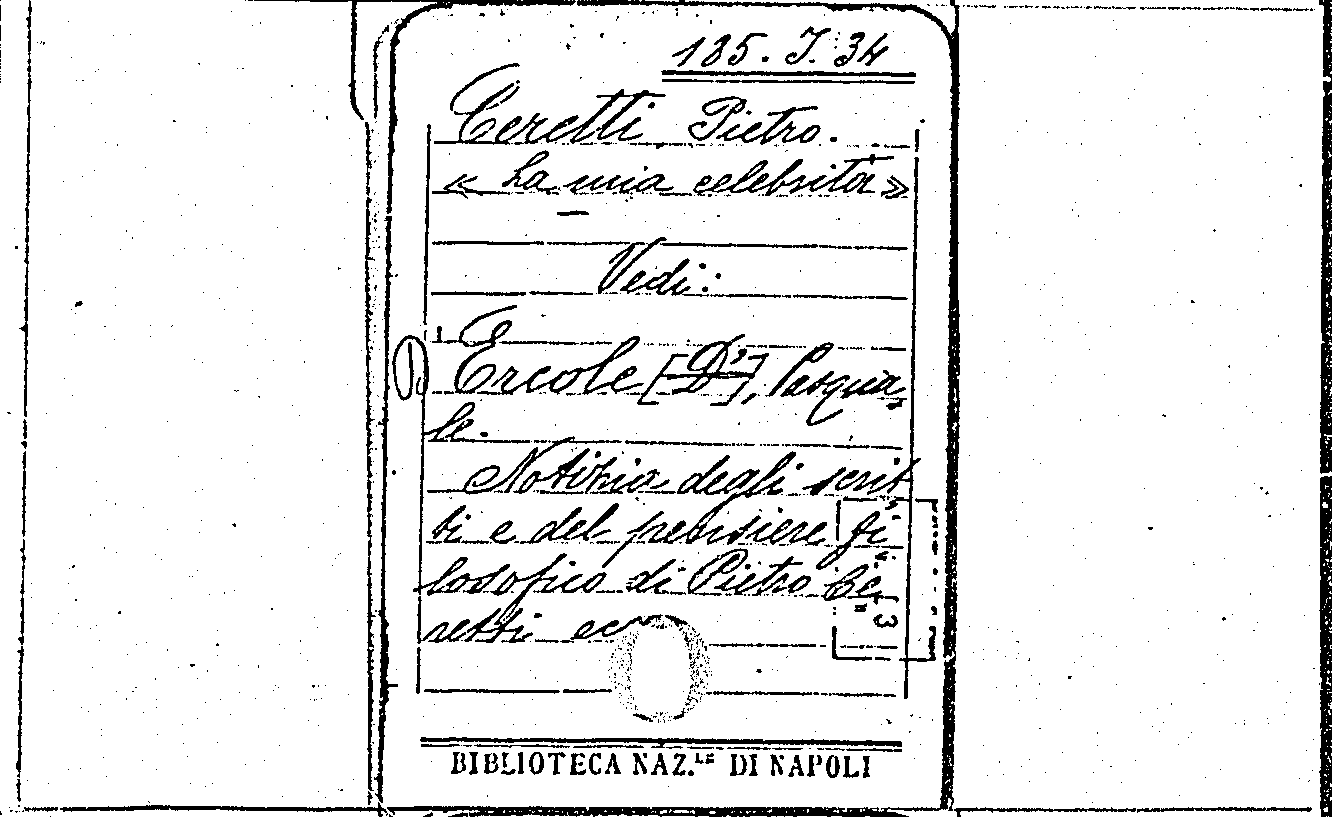 185. J. 34
Ceretti Pietro.
« La mia celebrità »
Vedi:
Ercole [D'], Pasqua-
le.
Notizia degli scrit-
ti e del pensiere fi-
losofico di Pietro Ce-
retti ecc.
BIBLIOTECA NAZ.LE DI NAPOLI